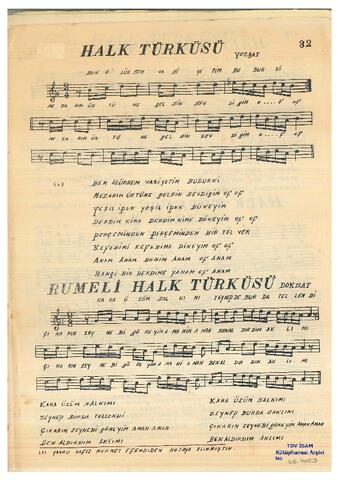 HALK TÜRKÜSÜ YOZGAT
32
BEN Ö LÜR SEM VA Sİ YE TİM BU DUR Kİ
ME ZA RIM ÜS TÜ NE GEL SİN SEV Dİ ĞİM O.... F OF
ME ZA RIM ÜS TÜ NE GEL SİN SEV Dİ ĞİM O.... F OF
BEN ÖLÜRSEM VASİYETİM BUDURKİ
MEZARIM ÜSTÜNE GELSİN SEVDİĞİM OF OF
YEŞİL İPEK YEŞİL İPEK BÜKEYİM
DERDİM KİME DERDİM KİME DÖKEYİM OF OF
PERÇEMİNDEN PERÇEMİNDEN BİR TEL VER
KEFENİMİ KEFENİME DİKEYİM OF OF
ANAM ANAM BENİM ANAM OF ANAM
HANGİ BİR DERDİME YANAM OF ANAM
RUMELİ HALK TÜRKÜSÜ
KA RA Ü ZÜM SAL KI MI ZEYNEP BUR DA TEL LEN Dİ
ÇI KA RIN ZEY NE Bİ GÖ RE YİM A MA NIM A MAN BEN AL DIR DIM AK LI MI
ÇI KA RIN ZEY NE Bİ GÖ RE YİM A MA NIM A MAN BEN AL DIR DIM AK LI MI
KARA ÜZÜM SALKIMI
ZEYNEP BURDA TELLENDİ
ÇIKARIN ZEYNEBİ GÖREYİM AMAN AMAN
BEN ALDIRDIM AKLIMI
KARA ÜZÜM SALKIMI
ZEYNEP BURDA SAKLIMI
ÇIKARIN ZEYNEBİ GÖREYİM AMAN AMAN
BEN ALDIRDIM AKLIMI
HAFIZ MEHMET EFENDİDEN NOTAYA ALINMIŞTIR
TDV İSAM
Kütüphanesi Arşivi
No